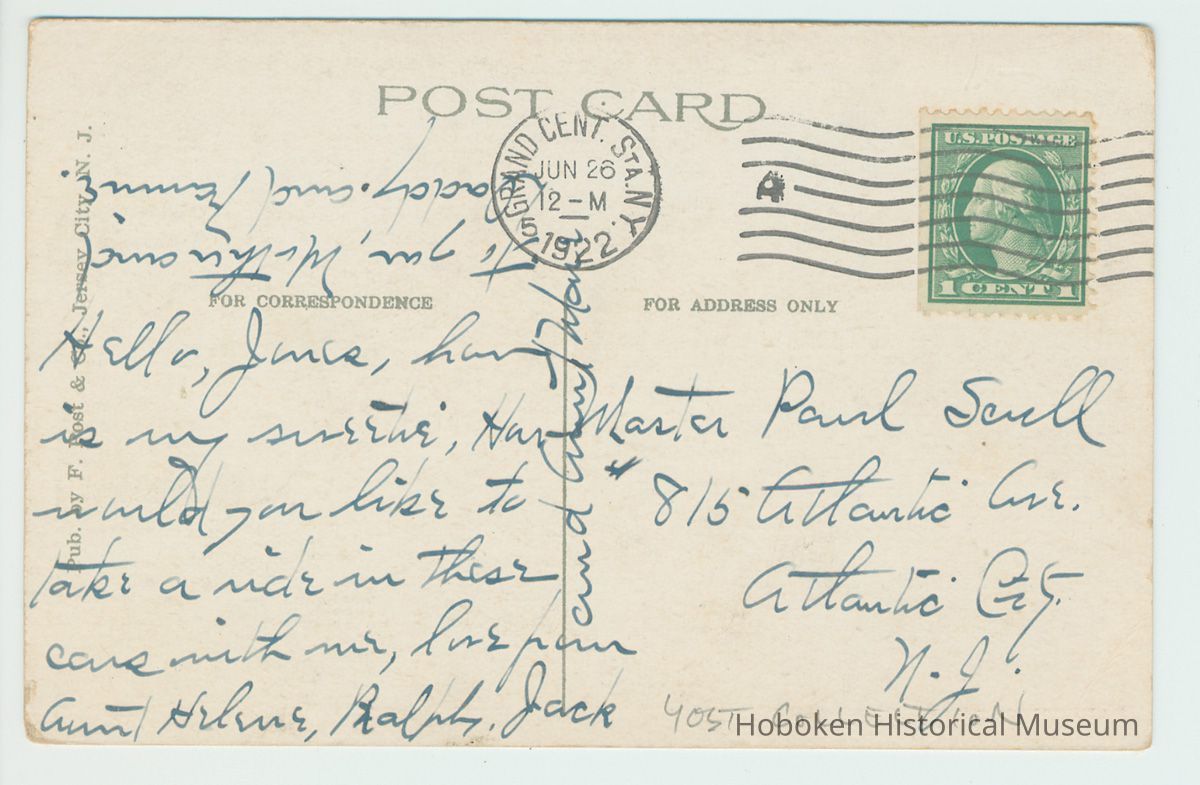 POST CARD
GRAND CENT. STA. N.Y.
JUN 26
12-M
1922
5
4
U.S. POSTAGE
1 CENT 1
Pub. by F. Post & Co., Jersey City, N. J.
FOR CORRESPONDENCE
FOR ADDRESS ONLY
Hello, how
is my sweetie,
would you like to
take a ride in these
cars with me, love from
Aunt Helene, Ralph, Jack
and Aunt
to you, Mother and
Daddy and
Master Paul Scull
815 Atlantic Ave.
Atlantic City.
N. J.
YOST COLLECTION
Hoboken Historical Museum